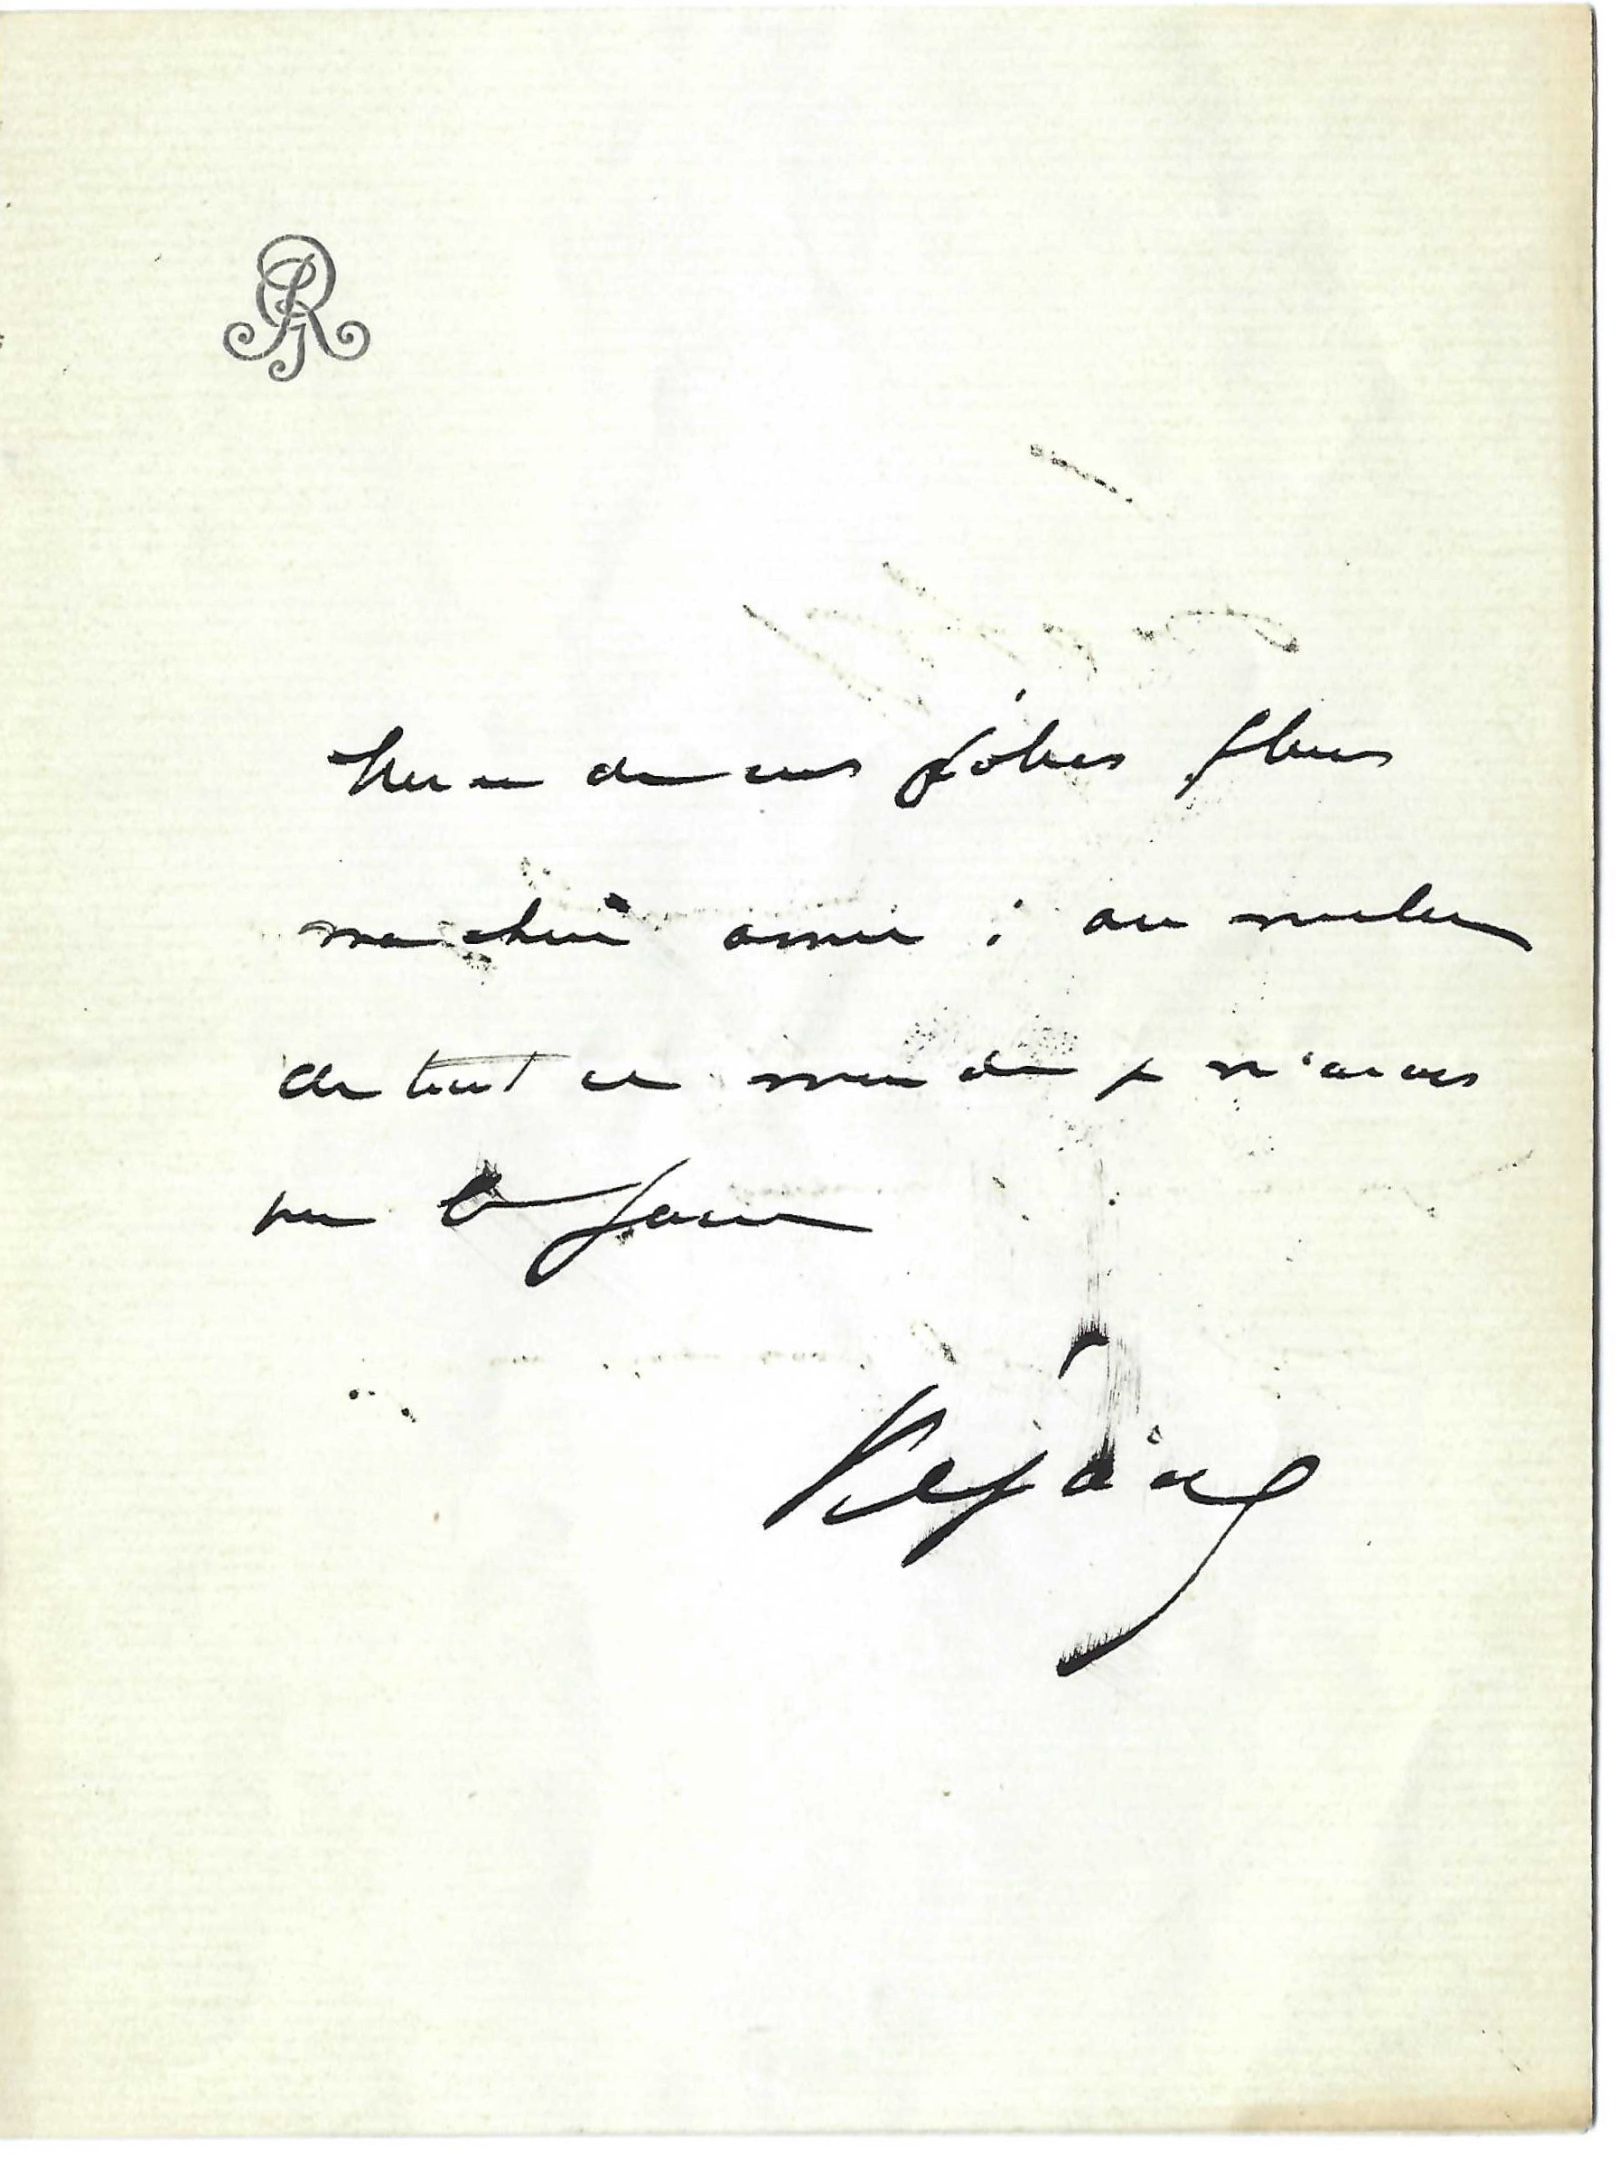 Merci de ces jolies fleurs
ma chère amie : au milieu
de tout ce monde je n'avais
pu le faire
Réjane